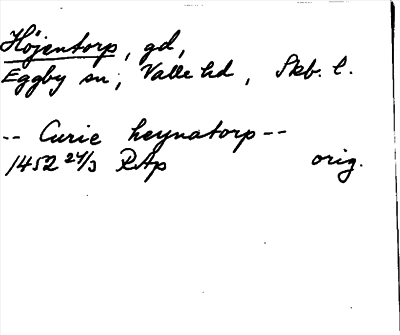 Höjentorp, gd,
Eggby sn, Valle hd, Skb. l.
-- Curie heynatorp --
1452 24/3 RAp orig.